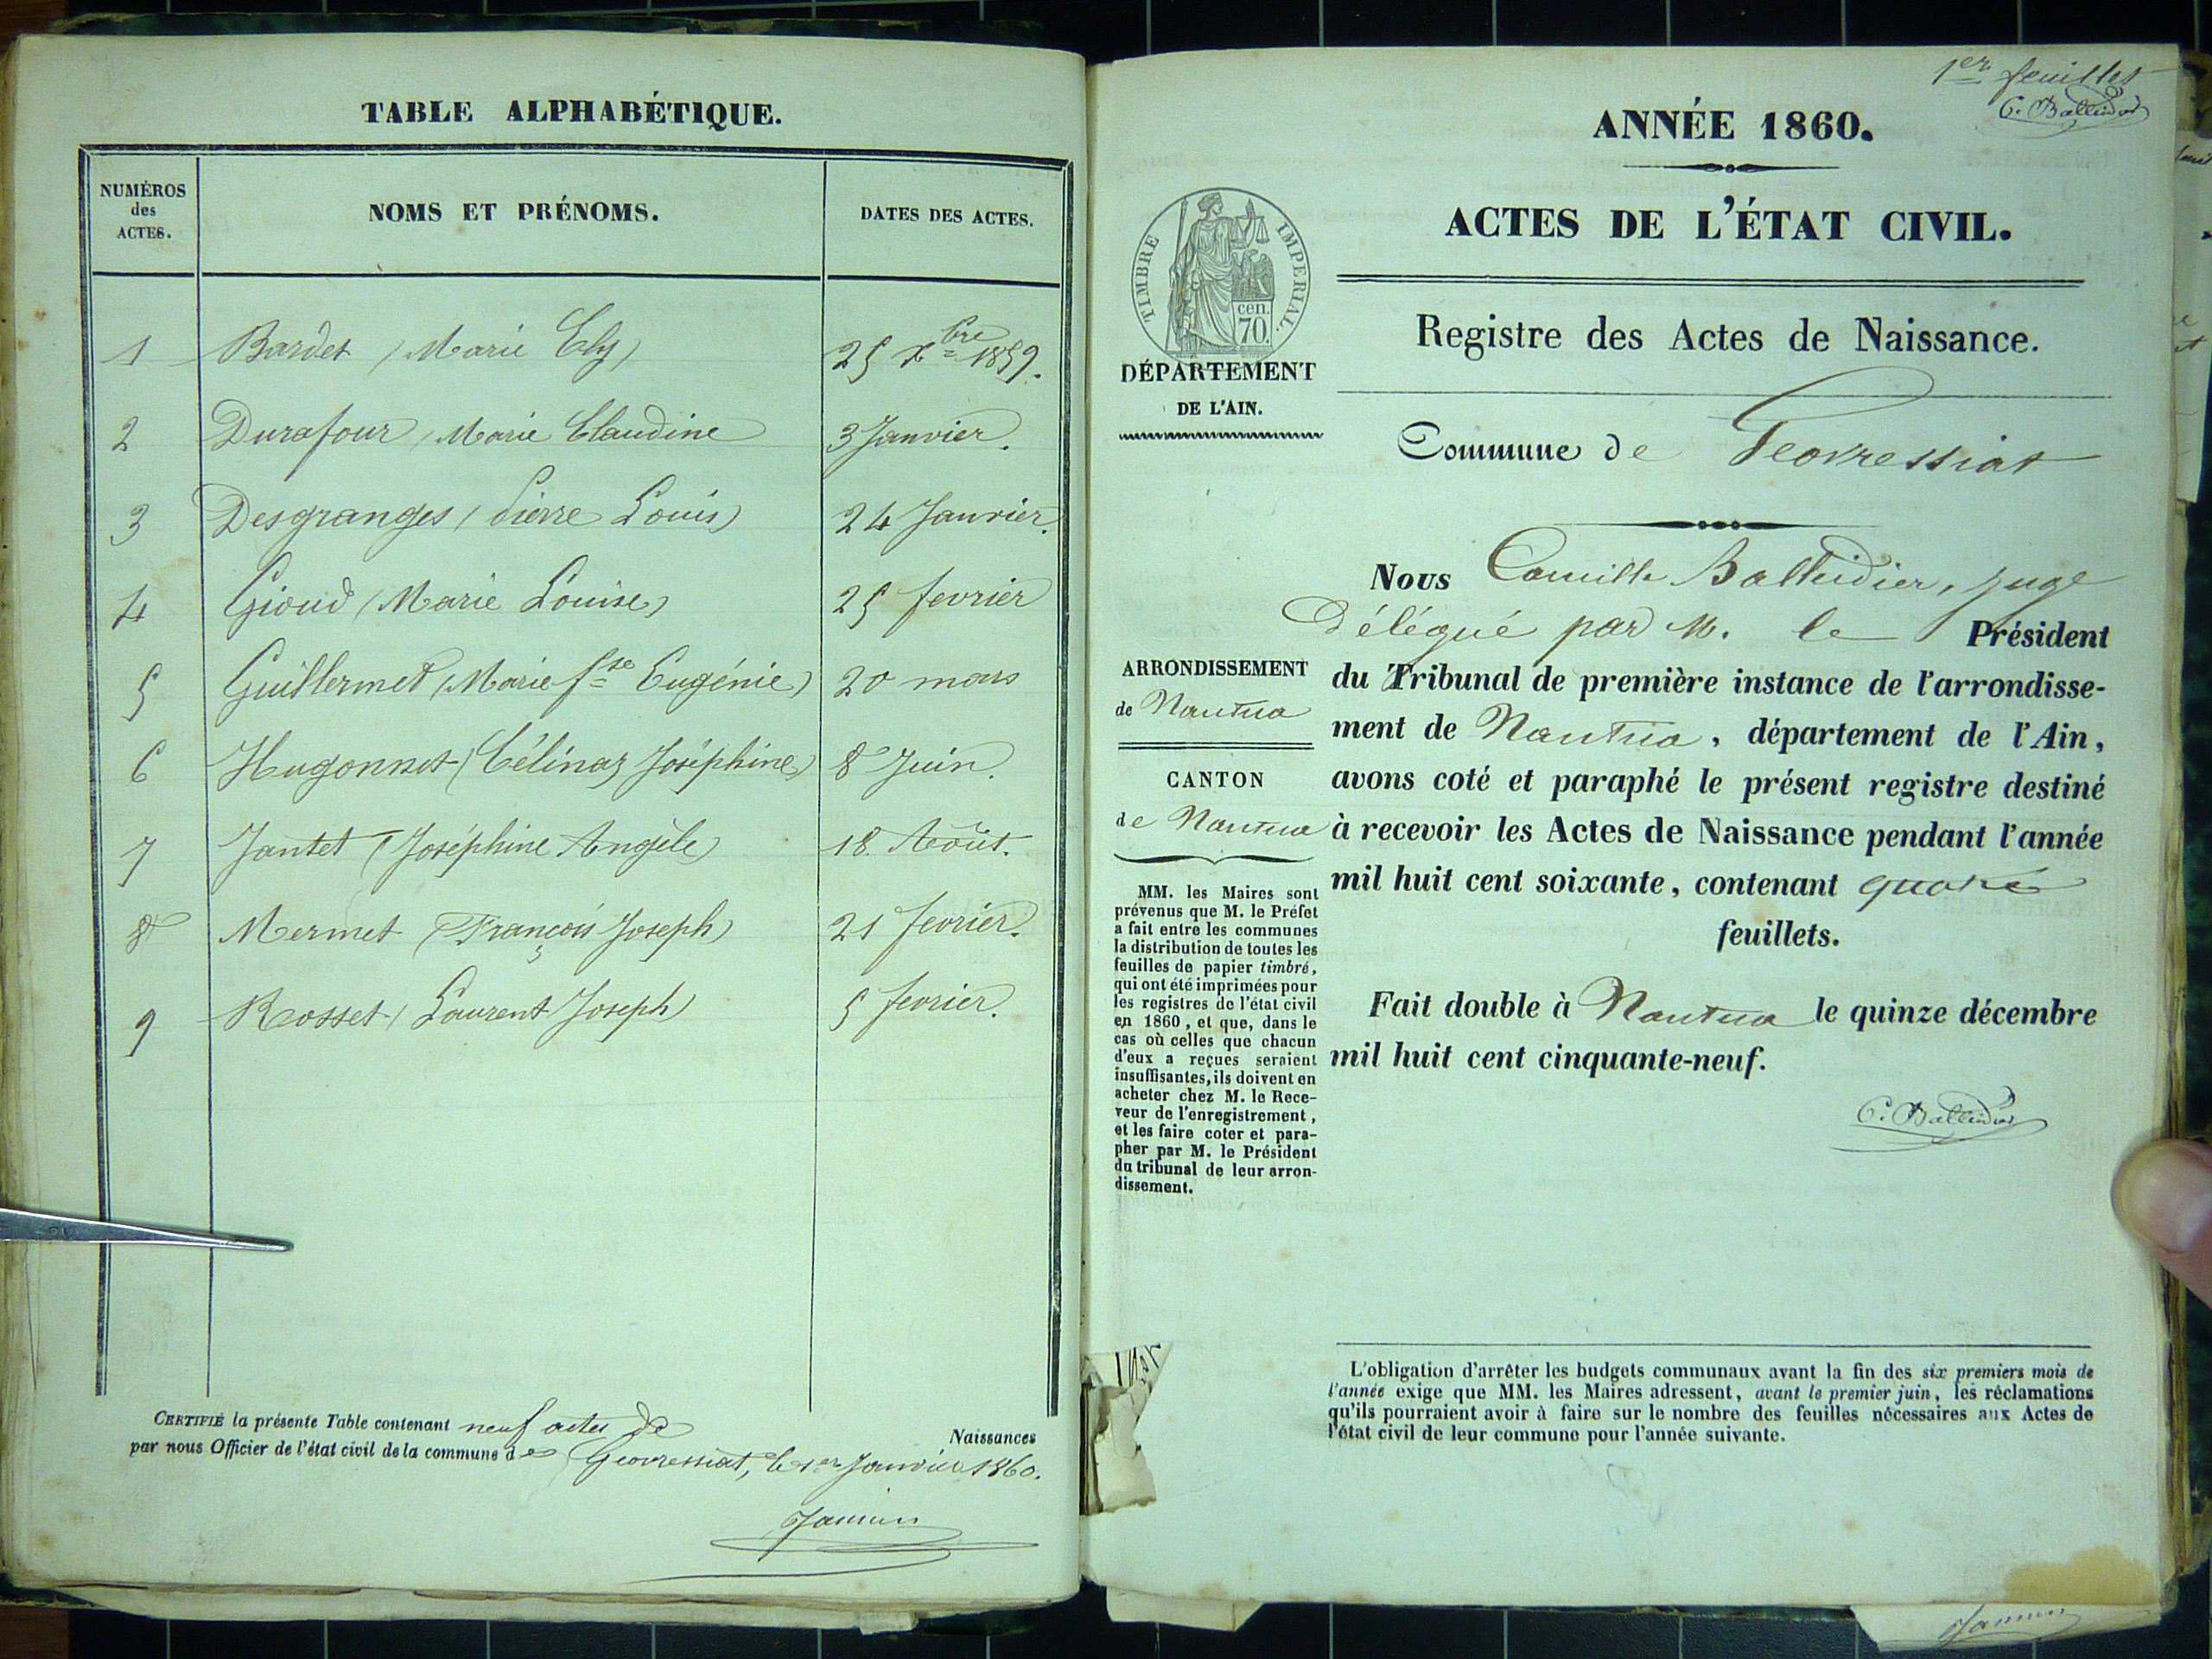 TABLE ALPHABÉTIQUE.
NUMÉROS
des
ACTES.
NOMS ET PRÉNOMS.
DATES DES ACTES.
1 Bardet (Marie Ely) 25 Xbre 1859.
2 Durafour (Marie Claudine 3 Janvier.
3 Desgranges (Pierre Louis) 24 Janvier.
4 Gioud (Marie Louise) 25 fevrier
5 Guillermet (Marie fse Eugénie) 20 mars
6 Hugonnet (Célinaz Joséphine) 8 Juin.
7 Jantet (Joséphine Angèle) 18. Août.
8 Mermet (François Joseph) 21 fevrier.
9 Rosset (Laurent Joseph) 5 fevrier.
CERTIFIÉ la présente Table contenant neuf actes de
Naissances
par nous Officier de l'état civil de la commune de Geovressiat, le 1er Janvier 1860.
1er feuillet
C. Balleidier
ANNÉE 1860.
ACTES DE L'ÉTAT CIVIL.
TIMBRE IMPERIAL.
cen.
70.
DÉPARTEMENT
DE L'AIN.
Registre des Actes de Naissance.
Commune de Geovressiat
ARRONDISSEMENT
de Nantua
CANTON
de Nantua
MM. les Maires sont
prévenus que M. le Préfet
a fait entre les communes
la distribution de toutes les
feuilles de papier timbré,
qui ont été imprimées pour
les registres de l'état civil
en 1860, et que, dans le
cas où celles que chacun
d'eux a reçues seraient
insuffisantes, ils doivent en
acheter chez M. le Rece-
veur de l'enregistrement,
et les faire coter et para-
pher par M. le Président
du tribunal de leur arron-
dissement.
Nous Camille Balleidier, juge
Délégué par M. le Président
du Tribunal de première instance de l'arrondisse-
ment de Nantua, département de l'Ain,
avons coté et paraphé le présent registre destiné
à recevoir les Actes de Naissance pendant l'année
mil huit cent soixante, contenant quatre
feuillets.
Fait double à Nantua le quinze décembre
mil huit cent cinquante-neuf.
C. Balleidier
L'obligation d'arrêter les budgets communaux avant la fin des six premiers mois de
l'année exige que MM. les Maires adressent, avant le premier juin, les réclamations
qu'ils pourraient avoir à faire sur le nombre des feuilles nécessaires aux Actes de
l'état civil de leur commune pour l'année suivante.